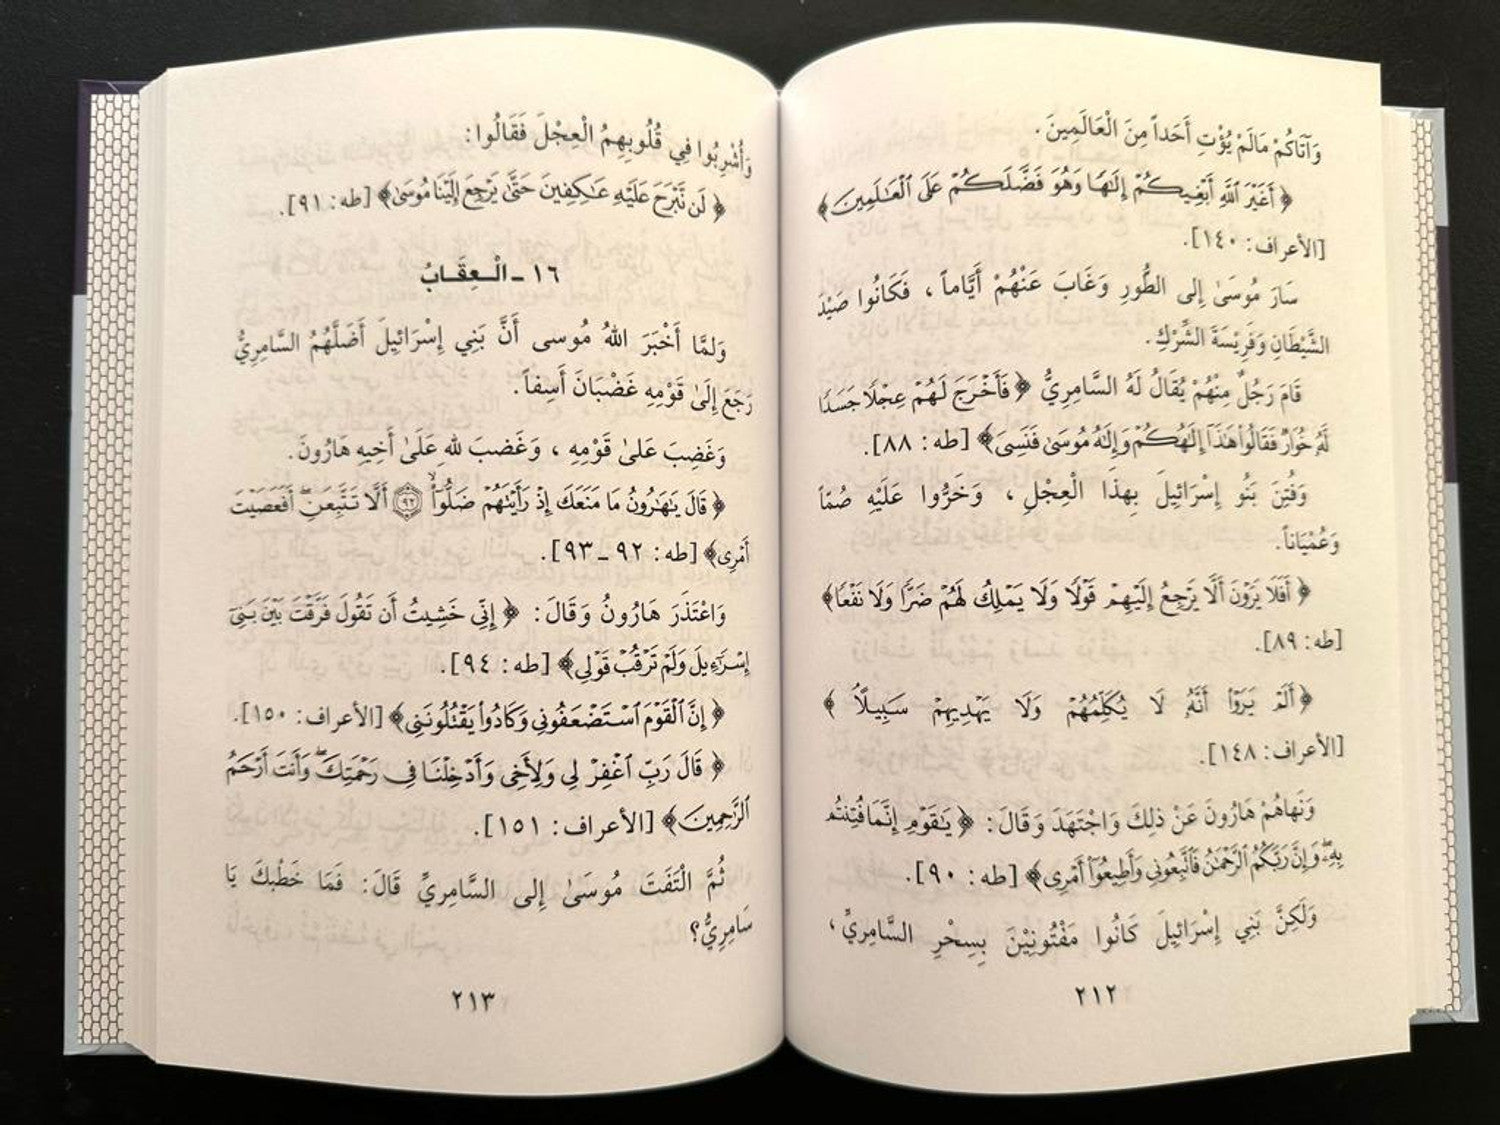 وَآتَاكُمْ مَالَمْ يُؤْتِ أَحَداً مِنَ الْعَالَمِينَ.
﴿أَغَيْرَ ٱللَّهِ أَبْغِيكُمْ إِلَٰهًا وَهُوَ فَضَّلَكُمْ عَلَى ٱلْعَٰلَمِينَ﴾
[الأعراف: ١٤٠].
سَارَ مُوسَىٰ إلى الطُّورِ وَغَابَ عَنْهُمْ أَيَّاماً، فَكَانُوا صَيْدَ
الشَّيْطَانِ وَفَرِيْسَةَ الشِّرْكِ.
قَامَ رَجُلٌ مِنْهُمْ يُقَالُ لَهُ السَّامِرِيُّ ﴿فَأَخْرَجَ لَهُمْ عِجْلًا جَسَدًا
لَّهُۥ خُوَارٌ فَقَالُوا۟ هَٰذَآ إِلَٰهُكُمْ وَإِلَٰهُ مُوسَىٰ فَنَسِىَ﴾ [طه: ٨٨].
وَفُتِنَ بَنُو إِسْرَائِيلَ بِهذَا الْعِجْلِ، وَخَرُّوا عَلَيْهِ صُمّاً
وَعُمْيَاناً.
﴿أَفَلَا يَرَوْنَ أَلَّا يَرْجِعُ إِلَيْهِمْ قَوْلًا وَلَا يَمْلِكُ لَهُمْ ضَرًّا وَلَا نَفْعًا﴾
[طه: ٨٩].
﴿أَلَمْ يَرَوْا۟ أَنَّهُۥ لَا يُكَلِّمُهُمْ وَلَا يَهْدِيهِمْ سَبِيلًا﴾
[الأعراف: ١٤٨].
وَنَهَاهُمْ هَارُونَ عَنْ ذلِكَ وَاجْتَهَدَ وَقَالَ: ﴿يَٰقَوْمِ إِنَّمَا فُتِنتُم
بِهِۦ ۖ وَإِنَّ رَبَّكُمُ ٱلرَّحْمَٰنُ فَٱتَّبِعُونِى وَأَطِيعُوٓا۟ أَمْرِى﴾ [طه: ٩٠].
وَلَكِنَّ بَنِي إِسْرَائِيلَ كَانُوا مَفْتُونِيْنَ بِسِحْرِ السَّامِرِيِّ،
٢١٢
وَأُشْرِبُوا فِي قُلُوبِهِمُ الْعِجْلَ فَقَالُوا:
﴿لَن نَّبْرَحَ عَلَيْهِ عَٰكِفِينَ حَتَّىٰ يَرْجِعَ إِلَيْنَا مُوسَىٰ﴾ [طه: ٩١].
١٦ - الْعِقَابُ
وَلمَّا أَخْبَرَ اللهُ مُوسى أَنَّ بَنِي إِسْرَائِيلَ أَضَلَّهُمُ السَّامِرِيُّ
رَجَعَ إِلَىٰ قَوْمِهِ غَضْبَانَ أَسِفاً.
وَغَضِبَ عَلىٰ قَوْمِهِ، وَغَضبَ للهِ عَلَىٰ أَخِيهِ هَارُونَ.
﴿قَالَ يَٰهَٰرُونُ مَا مَنَعَكَ إِذْ رَأَيْتَهُمْ ضَلُّوٓا۟ ۝٩٢ أَلَّا تَتَّبِعَنِ ۖ أَفَعَصَيْتَ
أَمْرِى﴾ [طه: ٩٢ - ٩٣].
وَاعْتَذَرَ هَارُونُ وَقَالَ: ﴿إِنِّى خَشِيتُ أَن تَقُولَ فَرَّقْتَ بَيْنَ بَنِىٓ
إِسْرَٰٓءِيلَ وَلَمْ تَرْقُبْ قَوْلِى﴾ [طه: ٩٤].
﴿إِنَّ ٱلْقَوْمَ ٱسْتَضْعَفُونِى وَكَادُوا۟ يَقْتُلُونَنِى﴾ [الأعراف: ١٥٠].
﴿قَالَ رَبِّ ٱغْفِرْ لِى وَلِأَخِى وَأَدْخِلْنَا فِى رَحْمَتِكَ ۖ وَأَنتَ أَرْحَمُ
ٱلرَّٰحِمِينَ﴾ [الأعراف: ١٥١].
ثُمَّ الْتَفَتَ مُوسَىٰ إلى السَّامِرِيِّ قَالَ: فَمَا خَطْبكَ يَا
سَامِرِيُّ؟
٢١٣